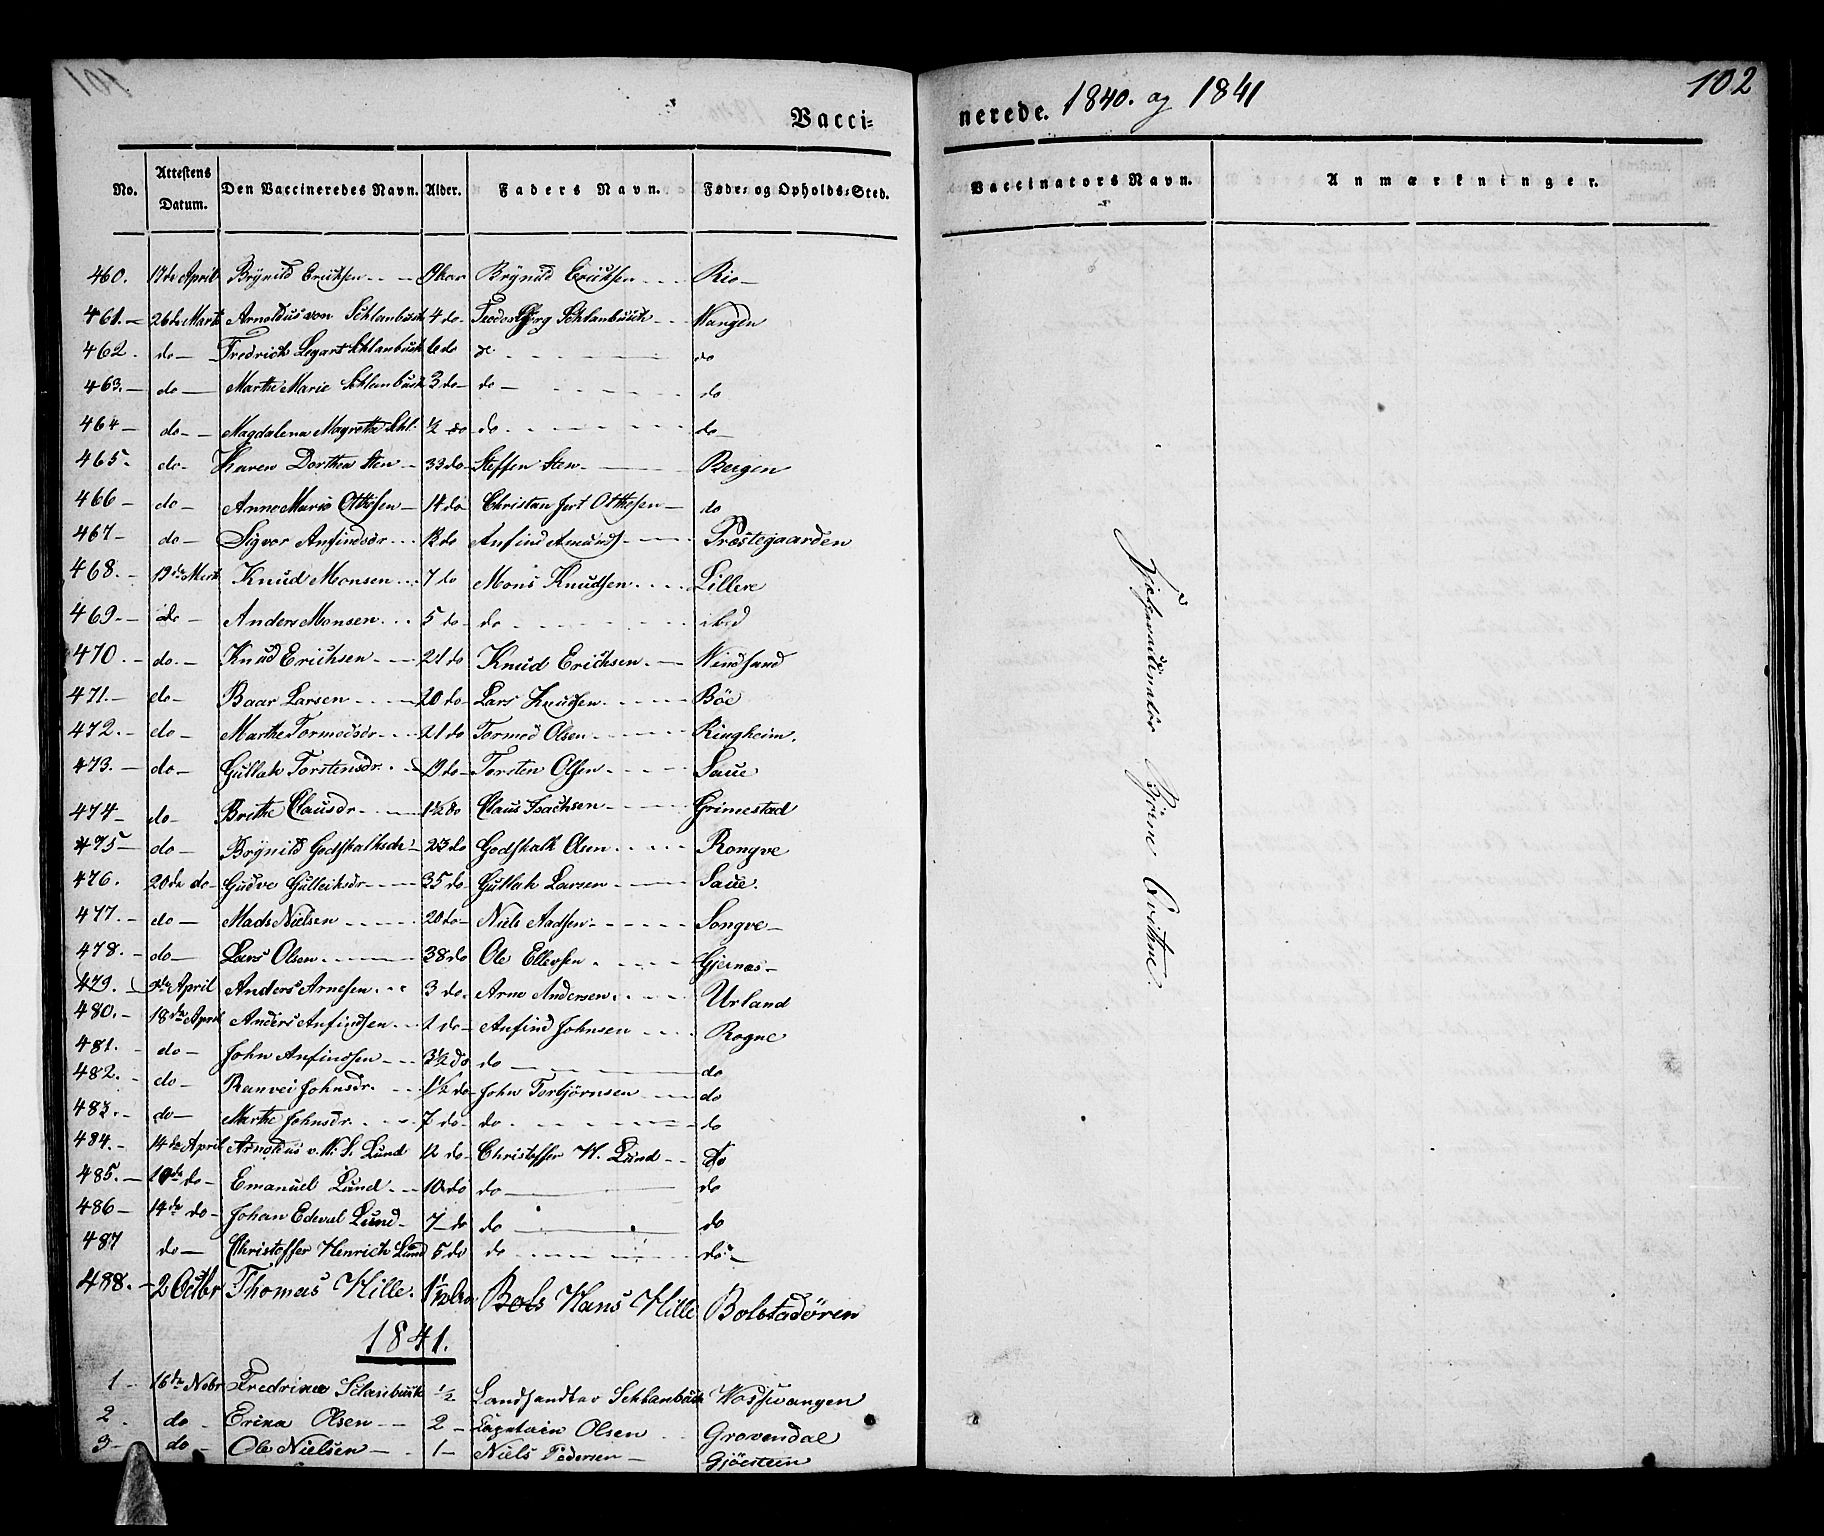 Vacci-
nerede. 1840. og 1841
102
No. Attestens Datum. Den Vaccineredes Navn. Alder. Faders Navn. Føde- og Opholds-Sted.
Vaccinators Navn. Anmærkninger.
460. 17de April Brÿnild Erichsen Brÿnild Erichsen
461. 26de Marts Arnoldus von Schlanbusch 4 do Schlanbusch Wangen
462. do Fredrich Schlanbusch 6 do do do
463. do Marthe Marie Schlanbusch 3 do do do
464 do Magdalena Magrethe Schl. ½ do do do
465. do Karen Dorthea Sten 33 do Steffen Sten Bergen
466 do Anne Marie Otthesen 14 do Christan Otthesen do
467 do Sigvor Anfindsdr 12 do Anfind Amunds. Præstegaarden
468. 19de Marts Knud Monsen 7 do Mons Knudsen Lillere
469 do Anders Monsen 5 do do ibid
470. do Knud Erichsen 21 do Knud Erichsen
471. do Baar Larsen 20 do Lars Knudsen Böe
472. do Marthe Tormodsdr 21 do Tormod Olsen Ringheim.
473. do Gullak Torstensdr. 19 do Torsten Olsen Saue
474 do Brithe Clausdr 1½ do Claus Isachsen Grimestad
475 do Brÿnild Godskalksdr 23 do Godskalk Olsen Rongve
476. 20de do Gudve Gulleiksdr 35 do Gullak Larsen Saue.
477. do Mads Nielsen 20 do Niels Aadsen Songve
478. do Lars Olsen 38 do Ole Ellevsen Gjernæs
479. April Anders Arnesen 3 do Arne Andersen Urland
480. 18de April Anders Anfindsen 1 do Anfind Johnsen Rogne
481. do John Anfindsen 3½ do do do
482. do Ranvei Johnsdr. 1½ do John Torbjörnsen do
483. do Marthe Johnsdr. 7 do do do
484. 14de April Arnoldus v. W. S. Lund 12 do Christoffer H. Lund do
485. do Emanuel Lund 10 do do do
486 14de do Johan Edval Lund 7 do do do
487 do Christoffer Henrich Lund 5 do do do
488. 2 Octbr Thomas Hille. Hans Hille Bolstadören
1841.
1 16de Nobr Fredrica Slanbusch ½ Schlanbusch Vossevangen
2. do Erika Olsen 2 Captain Olsen Gravendal
3 do Ole Nielsen 1 Niels Pedersen Gjöestein